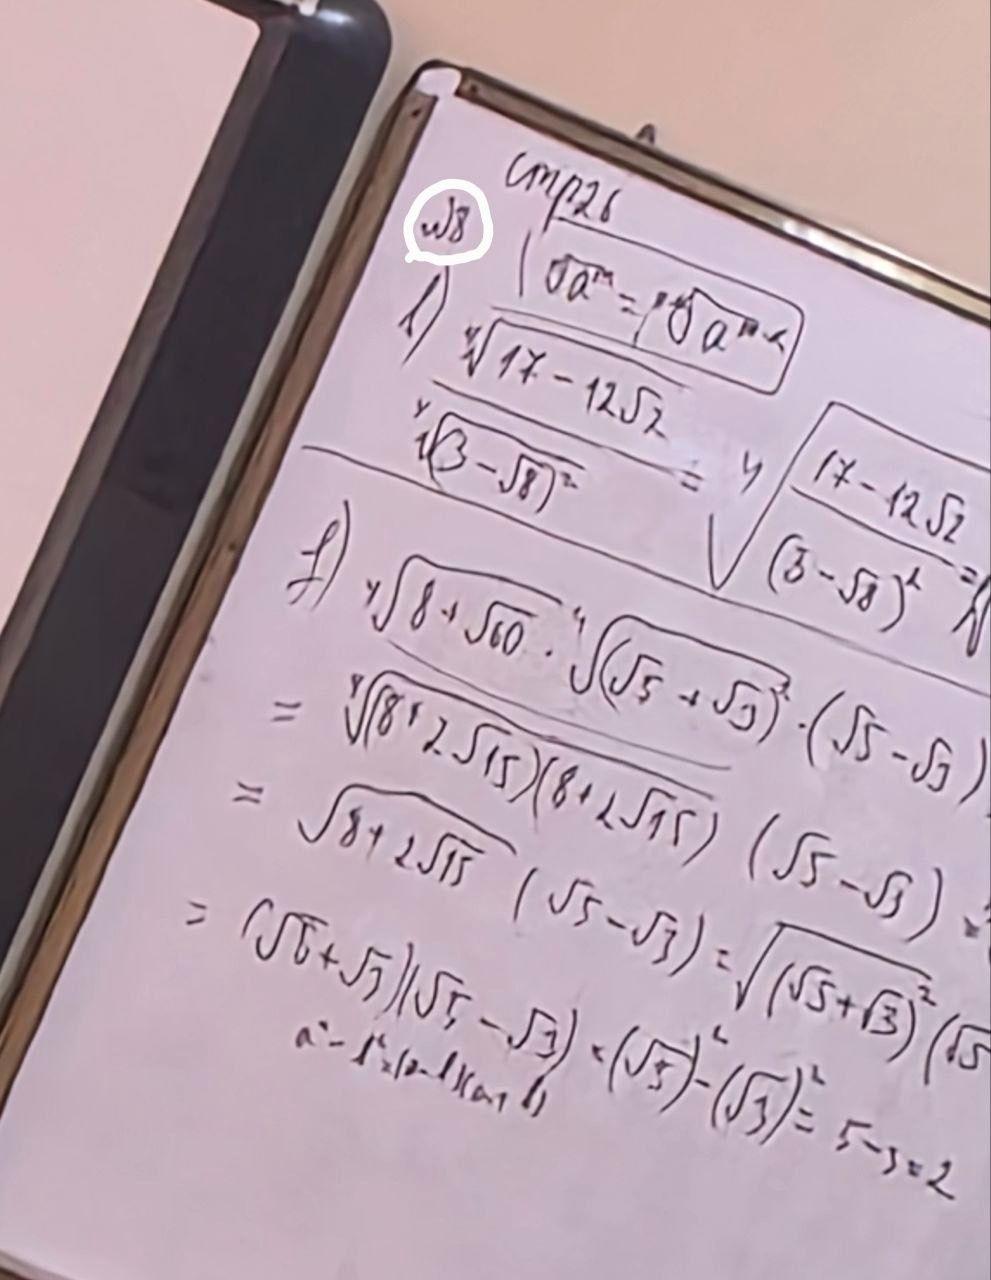 стр26
№8
ⁿ√aᵐ = ⁿᵏ√aᵐ·ᵏ
b) ⁴√(17 - 12√2) / ⁴√(3 - √8)² = ⁴√((17 - 12√2) / (3 - √8)²) = √
f) ⁴√(8 + √60) · ⁴√(√5 + √3)² · (√5 - √3)
= ⁴√((8 + 2√15)(8 + 2√15)) (√5 - √3) =
= √(8 + 2√15) (√5 - √3) = √(√5 + √3)² (√5
= (√5 + √3)(√5 - √3) = (√5)² - (√3)² = 5 - 3 = 2
a² - b² = (a - b)(a + b)